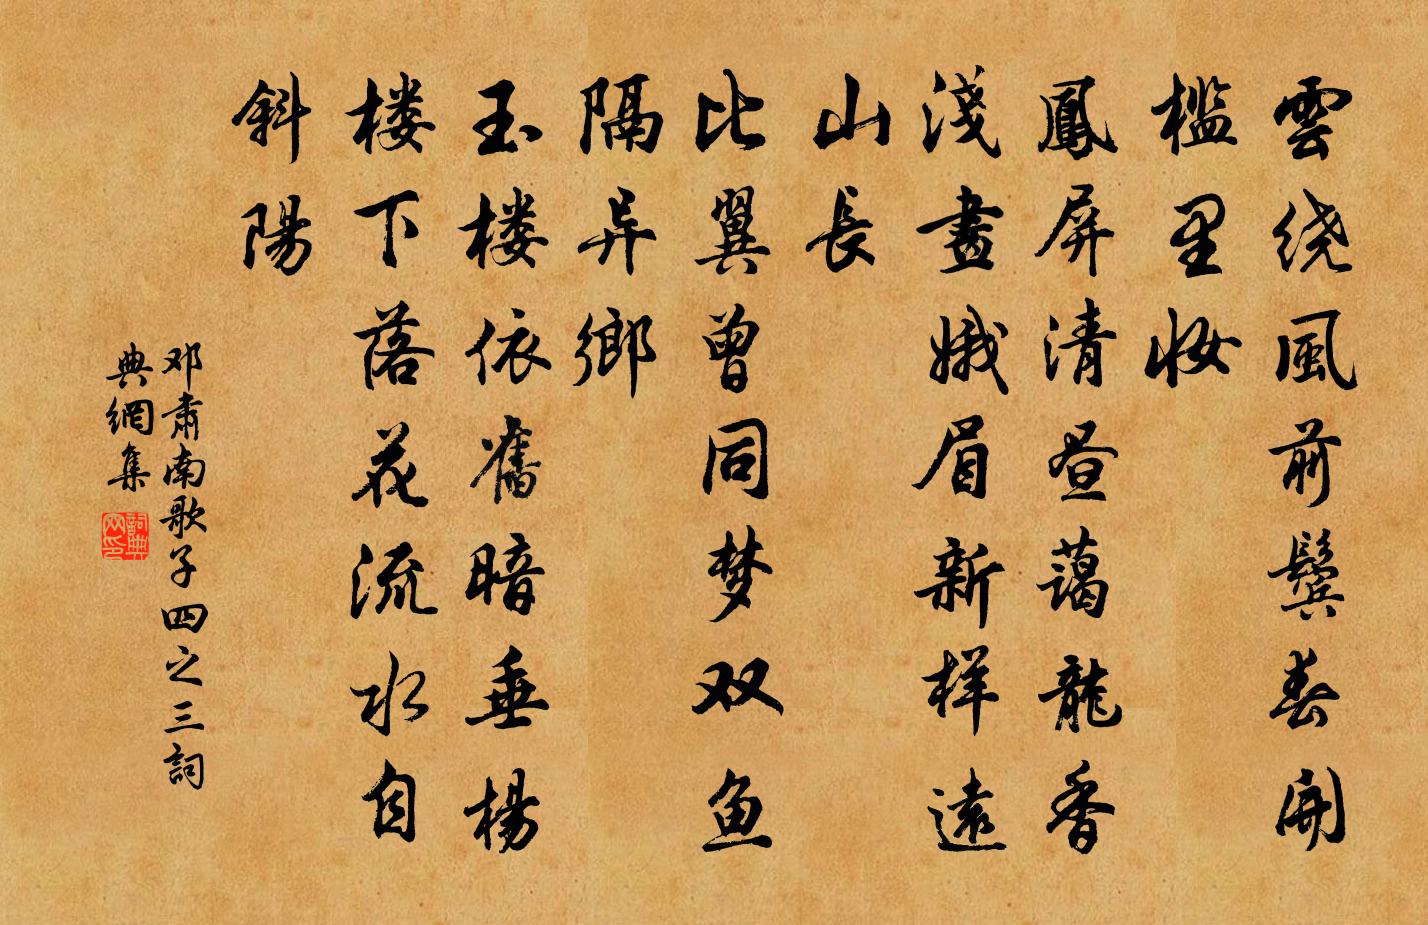 雲绕風前鬓春開
槛里妆
鳳屏清昼蔼龍香
淺畫娥眉新样遠
山長
比翼曾同梦双鱼
隔异鄉
玉楼依舊暗垂楊
楼下落花流水自
斜陽
邓肃南歌子四之三詞
典網集
詞典网印